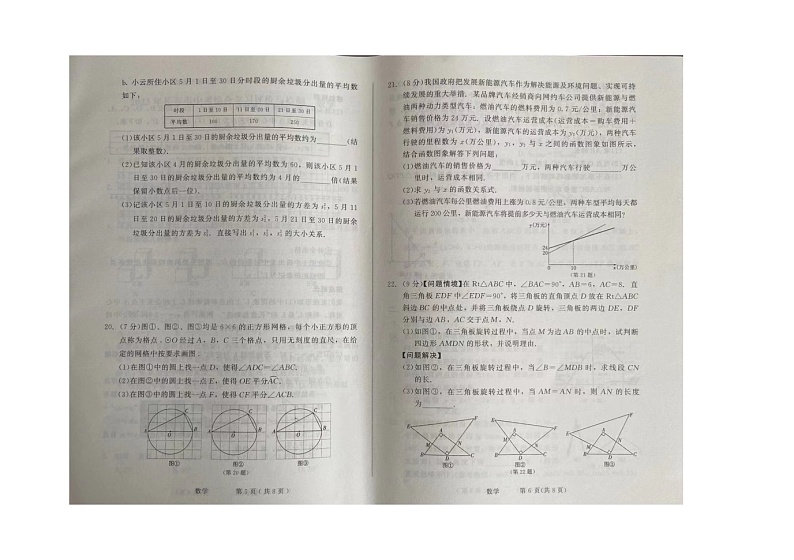 b. 小云所住小区5月1日至30日分时段的厨余垃圾分出量的平均数
如下:
时段 1日至10日 11日至20日 21日至30日
平均数 100 170 250
(1)该小区5月1日至30日的厨余垃圾分出量的平均数约为 (结
果取整数).
(2)已知该小区4月的厨余垃圾分出量的平均数为60,则该小区5月1
日至30日的厨余垃圾分出量的平均数约为4月的 倍(结果
保留小数点后一位).
(3)记该小区5月1日至10日的厨余垃圾分出量的方差为s₁²,5月11
日至20日的厨余垃圾分出量的方差为s₂²,5月21日至30日的厨余
垃圾分出量的方差为s₃². 直接写出s₁²,s₂²,s₃²的大小关系.
20. (7分)图①、图②、图③均是6×6的正方形网格,每个小正方形的顶
点称为格点. ⊙O经过A,B,C三个格点,只用无刻度的直尺,在给
定的网格中按要求画图.
(1)在图①中的圆上找一点D,使得∠ADC=∠ABC.
(2)在图②中的圆上找一点E,使得OE平分AC.
(3)在图③中的圆上找一点F,使得CF平分∠ACB.
A O B C
图① 图② 图③
(第20题)
数学 第5页(共8页)
21. (8分)我国政府把发展新能源汽车作为解决能源及环境问题、实现可持
续发展的重大举措. 某品牌汽车经销商向网约车公司提供新能源与燃
油两种动力类型汽车:燃油汽车的燃料费用为0.7元/公里;新能源汽
车销售价格为24万元. 设燃油汽车运营成本(运营成本=购车费用+
燃料费用)为y₁(万元),新能源汽车的运营成本为y₂(万元),两种汽车
行驶的里程数为x(万公里),y₁,y₂与x之间的函数图象如图所示,
结合函数图象解答下列问题:
(1)燃油汽车的销售价格为 万元,两种汽车行驶 万公
里时,运营成本相同.
(2)求y₂与x的函数关系式.
(3)若燃油汽车每公里燃油费用上涨为0.8元/公里,两种车型平均每天都
运行200公里,新能源汽车将提前多少天与燃油汽车运营成本相同?
y(万元)
24
20
0 10 x(万公里)
(第21题)
22. (9分)【问题情境】在Rt△ABC中,∠BAC=90°,AB=6,AC=8. 直
角三角板EDF中∠EDF=90°,将三角板的直角顶点D放在Rt△ABC
斜边BC的中点处,并将三角板绕点D旋转,三角板的两边DE,DF
分别与边AB,AC交于点M,N.
(1)如图①,在三角板旋转过程中,当点M为边AB的中点时,试判断
四边形AMDN的形状,并说明理由.
【问题解决】
(2)如图②,在三角板旋转过程中,当∠B=∠MDB时,求线段CN
的长.
(3)如图③,在三角板旋转过程中,当AM=AN时,则AN的长度
为 .
E A F M N B D C
图① 图② 图③
(第22题)
数学 第6页(共8页)